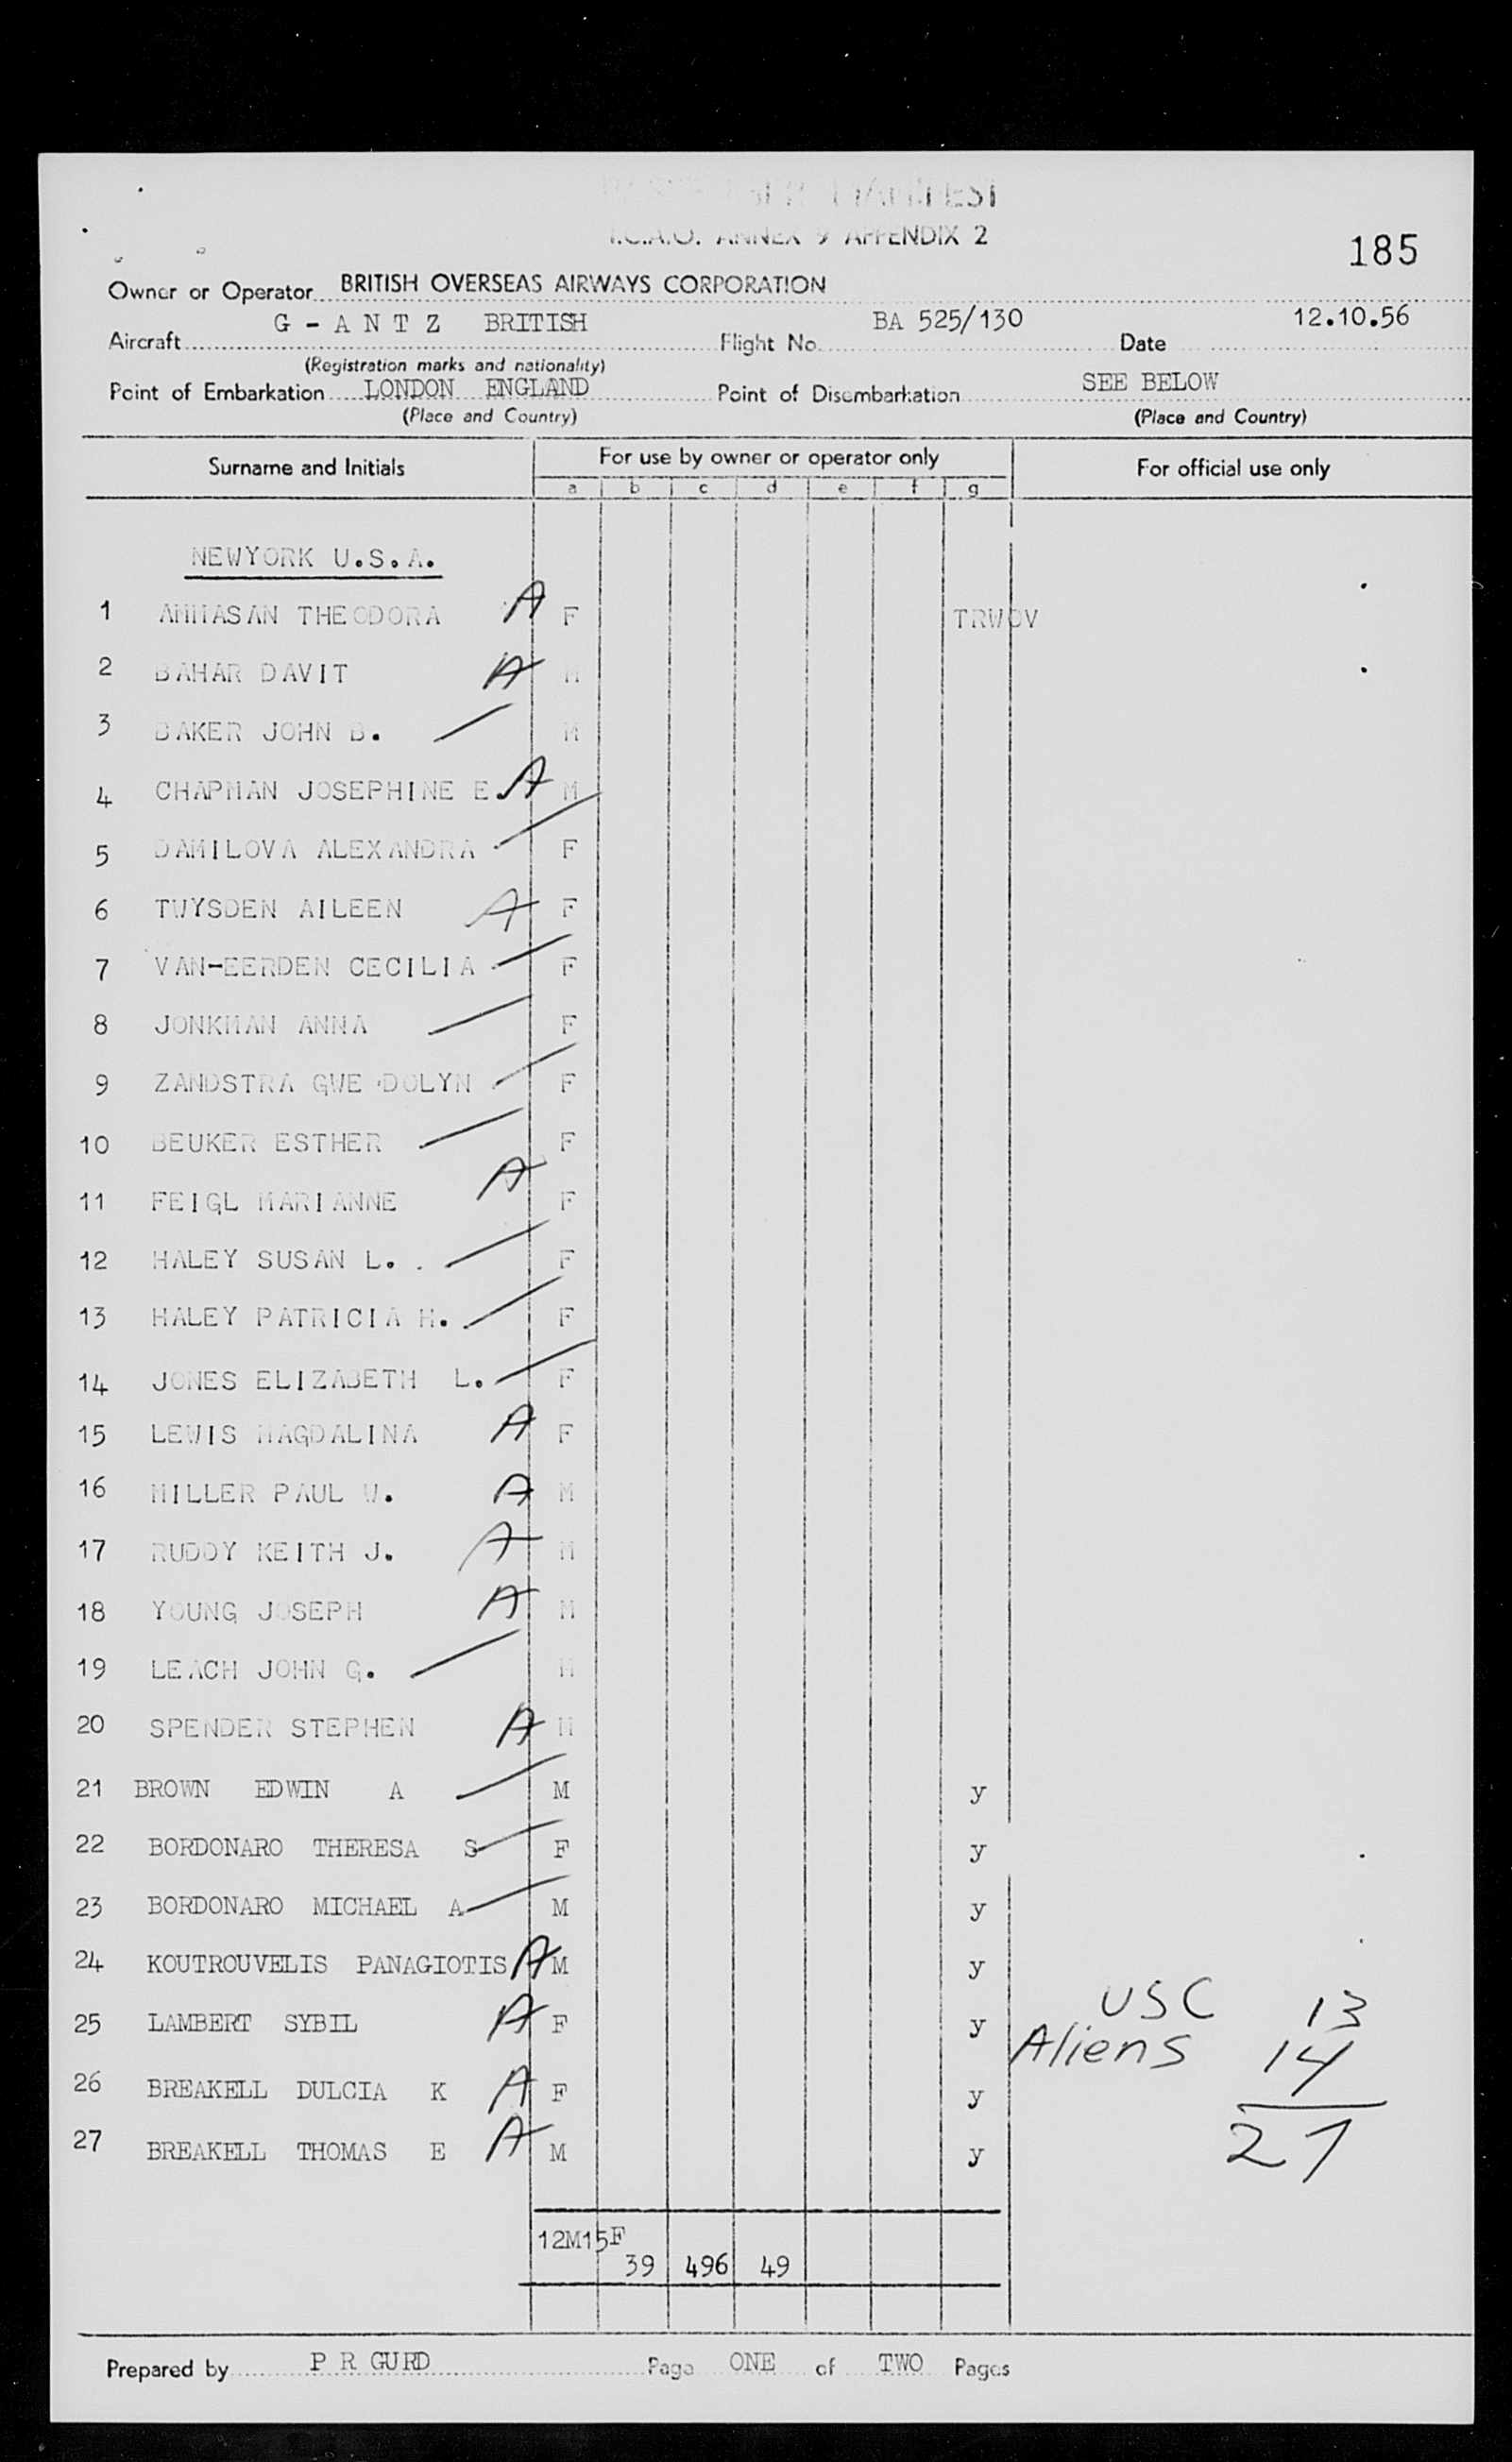 MANIFEST
I.C.A.O. ANNEX 9 APPENDIX 2
185
Owner or Operator BRITISH OVERSEAS AIRWAYS CORPORATION
Aircraft G - A N T Z BRITISH Flight No. BA 525/130 Date 12.10.56
(Registration marks and nationality)
Point of Embarkation LONDON ENGLAND Point of Disembarkation SEE BELOW
(Place and Country) (Place and Country)
Surname and Initials For use by owner or operator only For official use only
a b c d e f g
NEWYORK U.S.A.
1 THEODORA A F TRWOV
2 BAHAR DAVIT A M
3 BAKER JOHN B. M
4 CHAPMAN JOSEPHINE E. A M
5 DAMILOVA ALEXANDRA F
6 TWYSDEN AILEEN A F
7 VAN-EERDEN CECILIA F
8 JONKMAN ANNA F
9 ZANDSTRA GWE DOLYN F
10 BEUKER ESTHER F
11 FEIGL MARIANNE A F
12 HALEY SUSAN L. F
13 HALEY PATRICIA H. F
14 JONES ELIZABETH L. F
15 LEWIS MAGDALINA A F
16 MILLER PAUL W. A M
17 RUDDY KEITH J. A M
18 YOUNG JOSEPH A M
19 LEACH JOHN G. M
20 SPENDER STEPHEN A M
21 BROWN EDWIN A M y
22 BORDONARO THERESA S F y
23 BORDONARO MICHAEL A M y
24 KOUTROUVELIS PANAGIOTIS A M y
25 LAMBERT SYBIL A F y
26 BREAKELL DULCIA K A F y
27 BREAKELL THOMAS E A M y
USC 13
Aliens 14
27
12M15F
39 496 49
Prepared by P R GURD Page ONE of TWO Pages